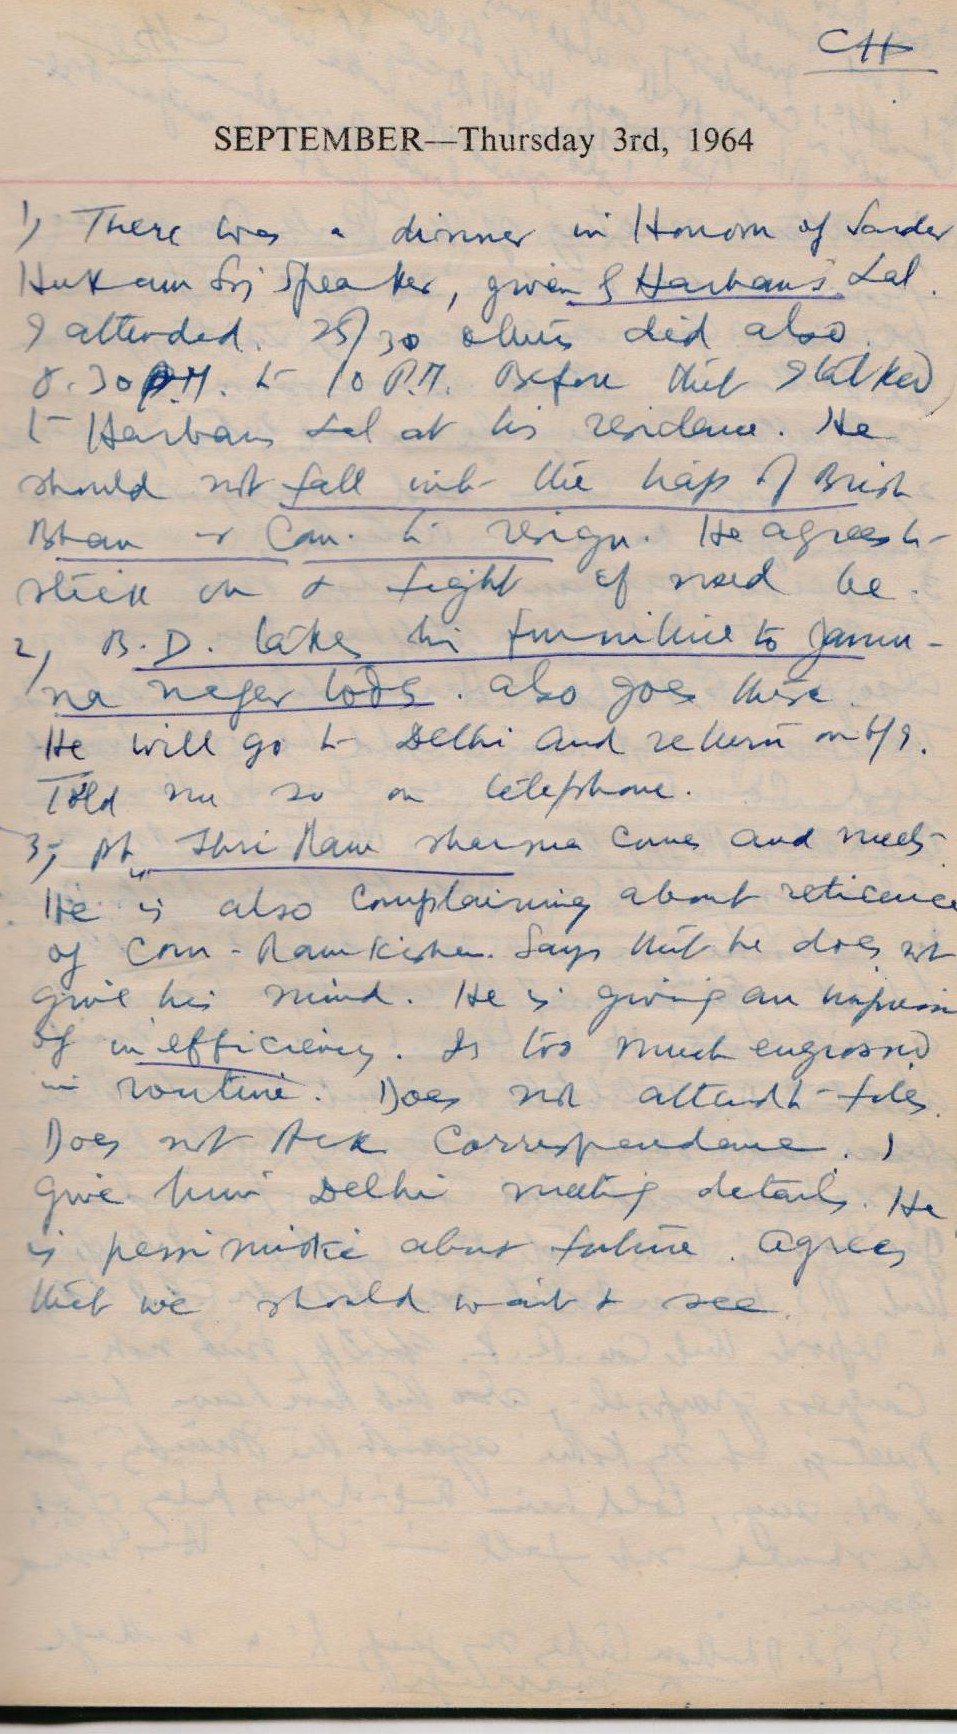 CH
SEPTEMBER—Thursday 3rd, 1964
1) There was a dinner in Honour of Sardar
Hukam Speaker, given Harbans Lal.
I attended. 25/30 others did also.
8.30 P.M. to 10 P.M. Before that I talked
to Harbans Lal at his residence. He
should not fall into the trap of Brish
Bhan & Com. to resign. He agrees to
stick on & fight if need be.
2) B.D. takes his furniture to Jamu-
na nager today. also goes there.
He will go to Delhi and return on 6/9.
Told me so on telephone.
3) Pt. Shri Ram Sharma comes and meets.
He is also complaining about reticence
of Com-Ram Kishen. Says that he does not
give his mind. He is giving an impression
of inefficiency. Is too much engrossed
in routine. Does not attend to files.
Does not Ack correspondence. I
give him Delhi meeting details. He
is pessimistic about future. agrees
that we should wait & see.